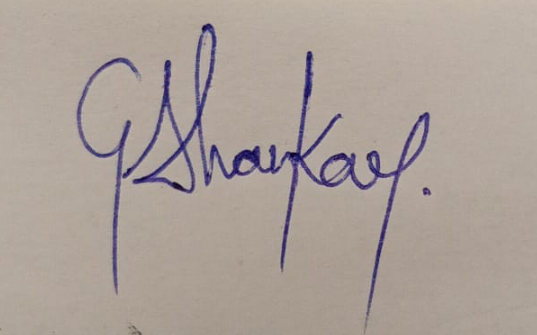 G Shankar.